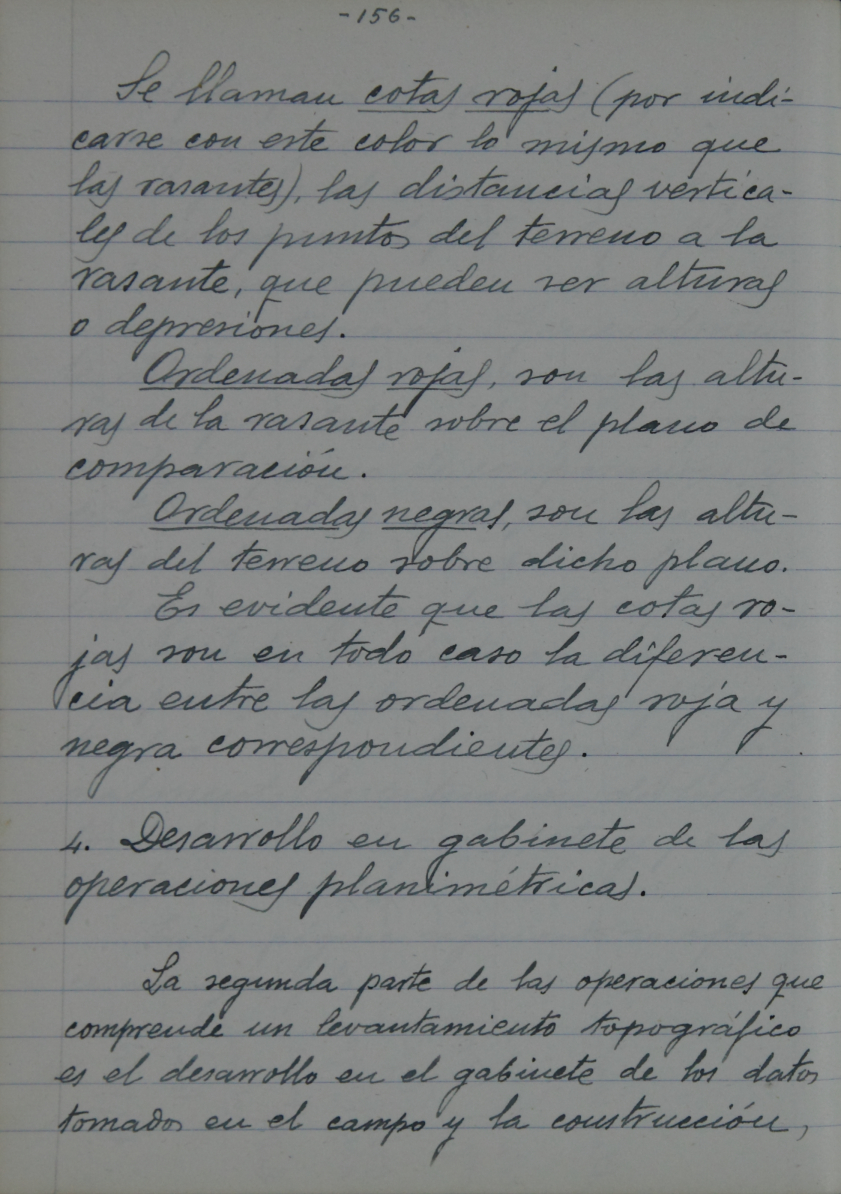 -156-
Se llaman cotas rojas (por indi-
carse con este color lo mismo que
las rasantes), las distancias vertica-
les de los puntos del terreno a la
rasante, que pueden ser alturas
o depresiones.
Ordenadas rojas, son las altu-
ras de la rasante sobre el plano de
comparación.
Ordenadas negras, son las altu-
ras del terreno sobre dicho plano.
Es evidente que las cotas ro-
jas son en todo caso la diferen-
cia entre las ordenadas roja y
negra correspondientes.
4. Desarrollo en gabinete de las
operaciones planimétricas.
La segunda parte de las operaciones que
comprende un levantamiento topográfico
es el desarrollo en el gabinete de los datos
tomados en el campo y la construcción,